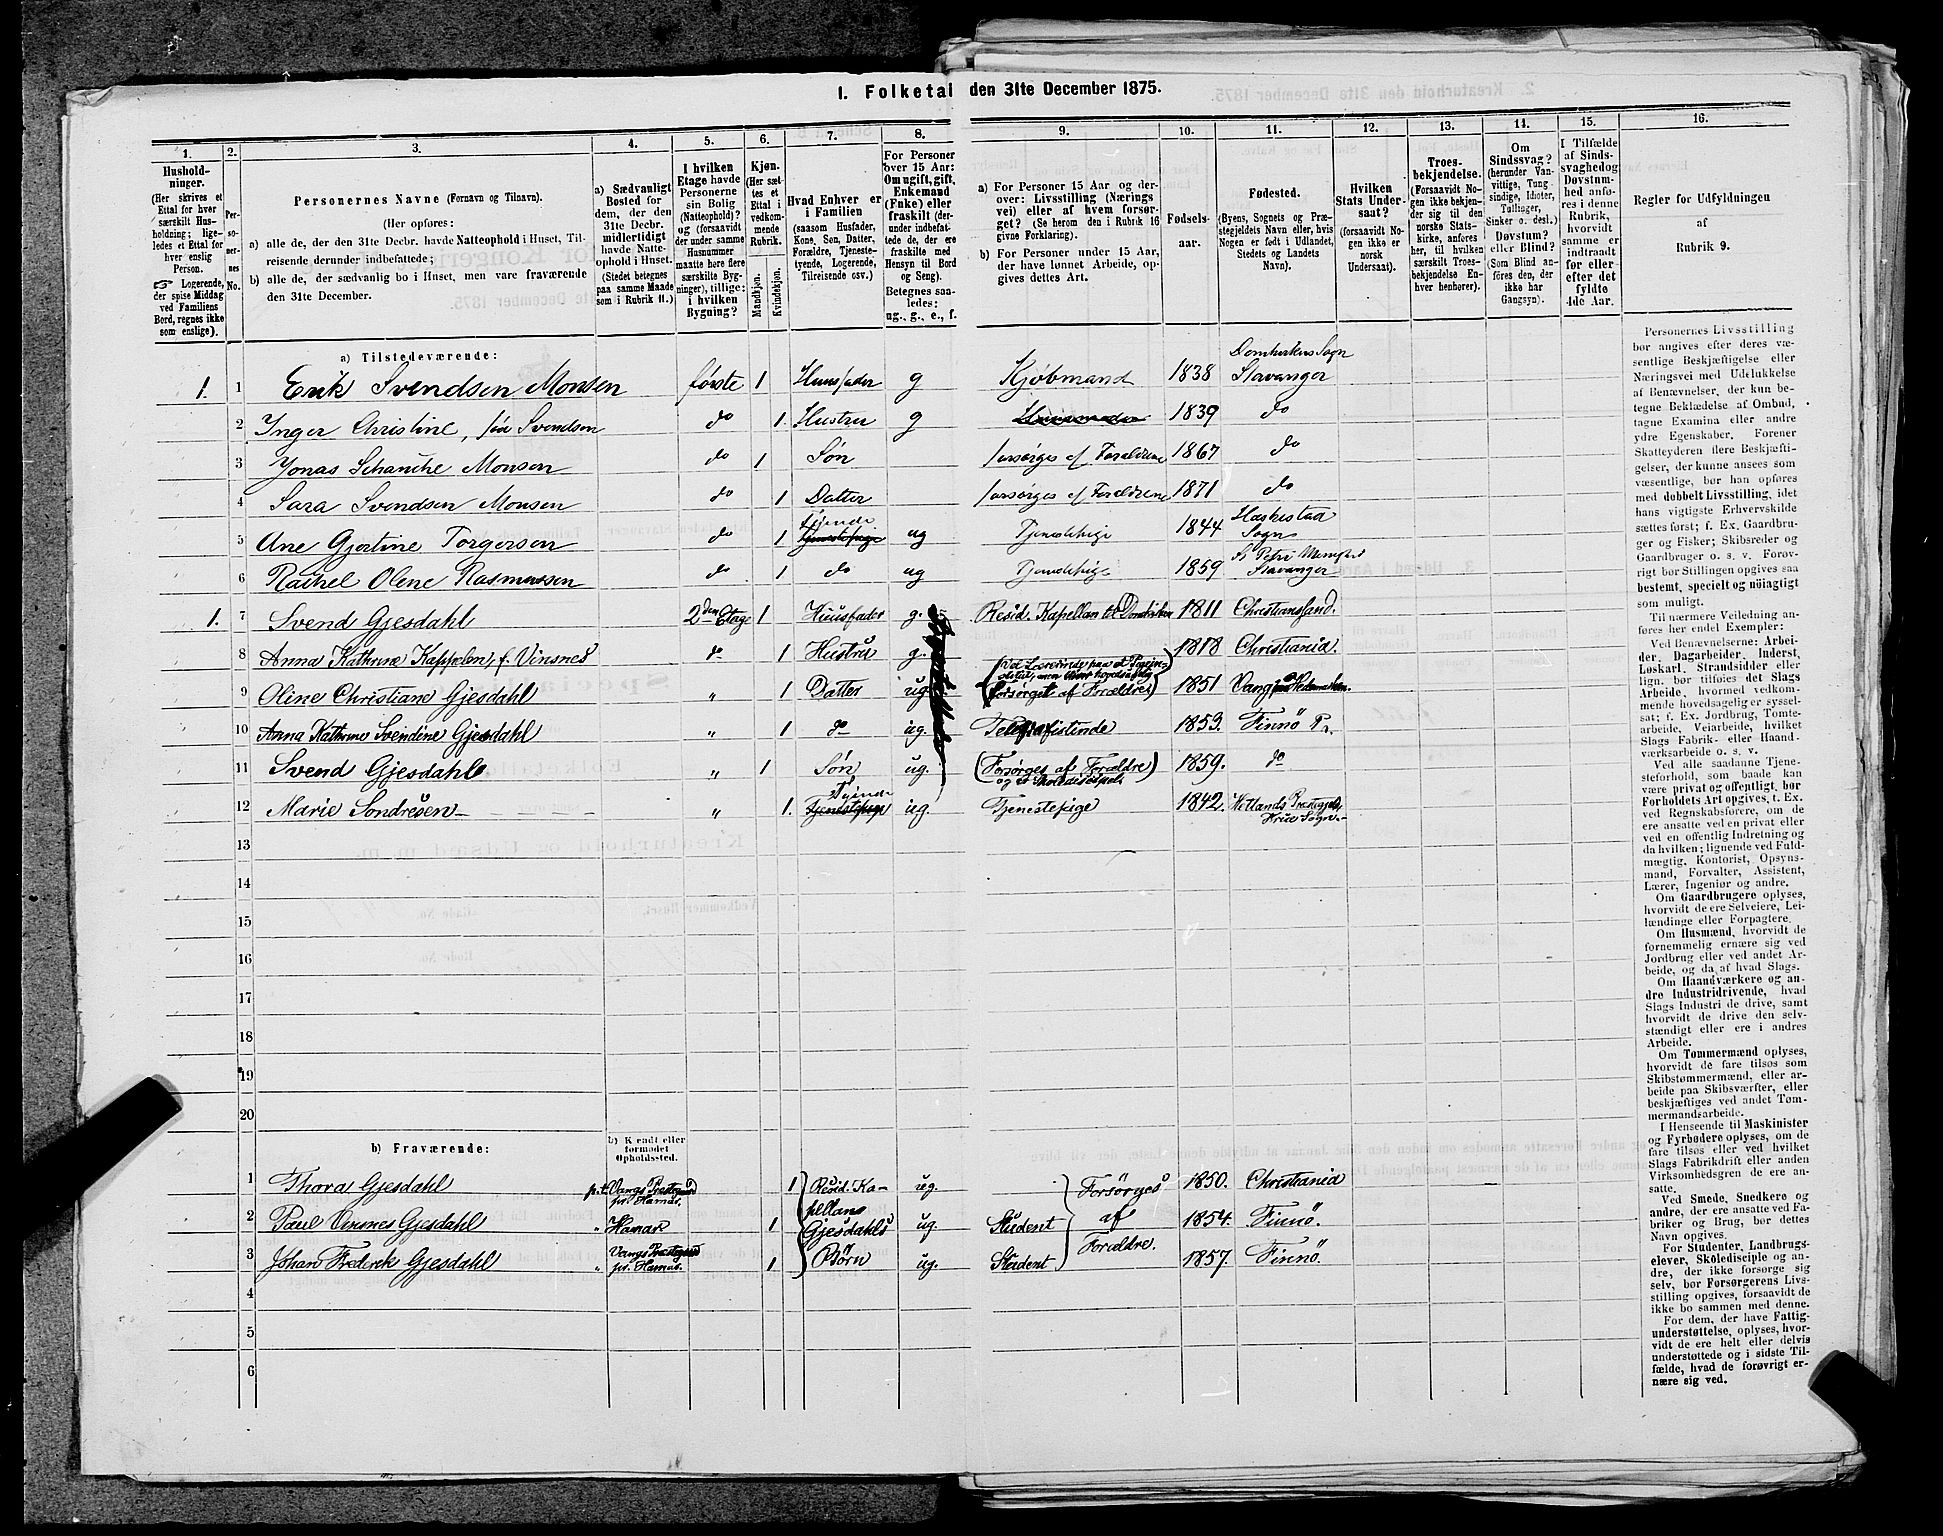 1. Folketal den 31te December 1875.
1. 2. 3. 4. 5. 6. 7. 8. 9. 10. 11. 12. 13. 14. 15. 16.
Hushold-
ninger.
(Her skrives et
Ettal for hver
særskilt Hus-
holdning; lige-
ledes et Ettal for
hver enslig
Person.
☞ Logerende,
der spise Middag
ved Familiens
Bord, regnes ikke
som enslige).
Per-
so-
ner-
nes
No.
Personernes Navne (Fornavn og Tilnavn).
(Her opføres:
a) alle de, der den 31te Decbr. havde Natteophold i Huset, Til-
reisende derunder indbefattede;
b) alle de, der sædvanlig bo i Huset, men vare fraværende
den 31te December.
a) Sædvanligt
Bosted for
dem, der den
31te Decbr.
midlertidigt
havde Natte-
ophold i Huset.
(Stedet betegnes
paa samme Maade
som i Rubrik 11.)
I hvilken
Etage havde
Personerne
sin Bolig
(Natteophold)?
og (forsaavidt
der under samme
Husnummer
maatte høre flere
særskilte Byg-
ninger), tillige:
i hvilken
Bygning?
Kjøn.
(Her sæt-
tes et
Ettal i
vedkom-
mende
Rubrik.
Mandkjøn.
Kvindekjøn.
Hvad Enhver er
i Familien
(saasom Husfader,
Kone, Søn, Datter,
Forældre, Tjeneste-
tyende, Logerende,
Tilreisende osv.)
For Personer
over 15 Aar:
Om ugift, gift,
Enkemand
(Enke) eller
fraskilt (der-
under indbefat-
tede de, der ere
fraskilte med
Hensyn til Bord
og Seng).
Betegnes saa-
ledes:
ug., g., e., f.
a) For Personer 15 Aar og der-
over: Livsstilling (Nærings
vei) eller af hvem forsør-
get? (Se herom den i Rubrik 16
givne Forklaring).
b) For Personer under 15 Aar,
der have lønnet Arbeide, op-
gives dettes Art.
Fødsels-
aar.
Fødested.
(Byens, Sognets og Præ-
stegjeldets Navn eller, hvis
Nogen er født i Udlandet,
Stedets og Landets
Navn).
Hvilken
Stats Under-
saat?
(forsaavidt No-
gen ikke er
norsk
Undersaat).
Troes-
bekjendelse.
(Forsaavidt No-
gen ikke bekjen-
der sig til den
norske Stats-
kirke, anføres
her, til hvilken
særskilt Troes-
bekjendelse En-
hver henhører).
Om
Sindssvag?
(herunder Van-
vittige, Tung-
sindige, Idioter,
Tullinger,
Sinker o. desl.)
Døvstum?
eller Blind?
(Som Blind an-
føres den, der
ikke har
Gangsyn).
I Tilfælde
af Sinds-
svaghed og
Døvstum-
hed anfø-
res i denne
Rubrik,
hvorvidt
samme er
indtraadt
før eller ef-
ter det
fyldte
4de Aar.
Regler for Udfyldningen
af
Rubrik 9.
a) Tilstedeværende:
1. 1 Erik Svendsen Monsen første 1 Huusfader g Kjøbmand 1838 Domkirkens Sogn Stavanger
2 Inger Christine, før Svendsen do 1 Hustru g 1839 do
3 Jonas Schanche Monsen do 1 Søn forsørges af Forældrene 1867 do
4 Sara Svendsen Monsen do 1 Datter forsørges af Forældrene 1871 do
5 Ane Gjertine Torgersen do 1 Tjenestepige Tyende ug Tjenestepige 1844 Haskestad Sogn
6 Rachel Olene Rasmussen do 1 do ug Tjenestepige 1859 St Petri Menighed Stavanger
1. 7 Svend Gjesdahl 2den Etage 1 Huusfader g. Resid. Kapellan til Domkirken 1811 Christianssand.
8 Anna Kathrine Kappelen, f. Vinsnes do 1 Hustru g. 1818 Christiania.
9 Oline Christiane Gjesdahl " 1 Datter ug. (Forsørget af Forældre) 1851 Vang paa Hedemarken.
10 Anna Kathrine Svendine Gjesdahl " 1 do ug. Telegrafistinde 1853. Finnø Pr.
11 Svend Gjesdahl " 1 Søn ug. (Forsørges af Forældre) 1859. do
12 Marie Sondresen " 1. Tjenestepige Tyende ug. Tjenestepige 1842. Hetlands Præstegjeld,
13
14
15
16
17
18
19
20
b) Fraværende:
b) Kjendt eller
formodet
Opholdssted.
1 Thora Gjesdahl p.t. Vangs Præstegaard pr. Hamar. 1 Resid. Ka- ug. Forsørges 1850. Christiania
2 Paul Vinsnes Gjesdahl " Hamar 1 pellans Gjesdahls ug. Student af 1854. Finnø.
3 Johan Frederik Gjesdahl " Vangs Præstegaard pr. Hamar. 1 Børn ug. Student Forældre. 1857. Finnø.
4
5
6
Personernes Livsstilling
bør angives efter deres væ-
sentlige Beskjæftigelse eller
Næringsvei med Udelukkelse
af Benævnelser, der kun be-
tegne Beklædelse af Ombud,
tagne Examina eller andre
ydre Egenskaber. Forener
Skatteyderen flere Beskjæfti-
gelser, der kunne ansees som
væsentlige, bør han opføres
med dobbelt Livsstilling, idet
hans vigtigste Erhvervskilde
sættes først; f. Ex. Gaardbru-
ger og Fisker; Skibsreder og
Gaardbruger o. s. v. Forøv-
rigt bør Stillingen opgives saa
bestemt, specielt og nøiagtigt
som muligt.
Til nærmere Veiledning an-
føres her endel Exempler:
Ved Benævnelserne: Arbei-
der, Dagarbeider, Inderst,
Løskarl, Strandsidder eller
lign. bør tilføies det Slags
Arbeide, hvormed vedkom-
mende hovedsagelig er syssel-
sat; f. Ex. Jordbrug, Tomte-
arbeide, Veiarbeide, hvilket
Slags Fabrik- eller Haand-
værksarbeide o. s. v.
Ved alle saadanne Tjene-
steforhold, som baade kan
være privat og offentligt, bør
Forholdets Art opgives, t. Ex.
ved Regnskabsførere, om de
ere ansatte ved en privat eller
ved en offentlig Indretning og
da hvilken; lignende ved Fuld-
mægtig, Kontorist, Opsyns-
mand, Forvalter, Assistent,
Lærer, Ingeniør og andre.
Om Gaardbrugere oplyses,
hvorvidt de ere Selveiere, Lei-
lændinge eller Forpagtere.
Om Husmænd, hvorvidt de
fornemmelig ernære sig ved
Jordbrug eller ved andet Ar-
beide, og da af hvad Slags.
Om Haandværkere og an-
dre Industridrivende, hvad
Slags Industri de drive, samt
hvorvidt de drive den selv-
stændigt eller ere i andres
Arbeide.
Om Tømmermænd oplyses,
hvorvidt de fare tilsøs som
Skibstømmermænd, eller ar-
beide paa Skibsværfter, eller
beskjæftiges ved andet Tøm-
mermandsarbeide.
I Henseende til Maskinister
og Fyrbødere oplyses, om de
fare tilsøs eller ved hvilket
Slags Fabrikdrift eller anden
Virksomhedsgren de ere an-
satte.
Ved Smede, Snedkere og
andre, der ere ansatte ved Fa-
briker og Brug, bør dettes
Navn opgives.
For Studenter, Landbrugs-
elever, Skoledisciple og an-
dre, der ikke forsørge sig
selv, bør Forsørgerens Livs-
stilling opgives, forsaavidt de
ikke bo sammen med denne.
For dem, der have Fattig-
understøttelse, oplyses, hvor-
vidt de ere helt eller delvis
understøttede og i sidste Til-
fælde, hvad de forøvrigt er-
nære sig ved.